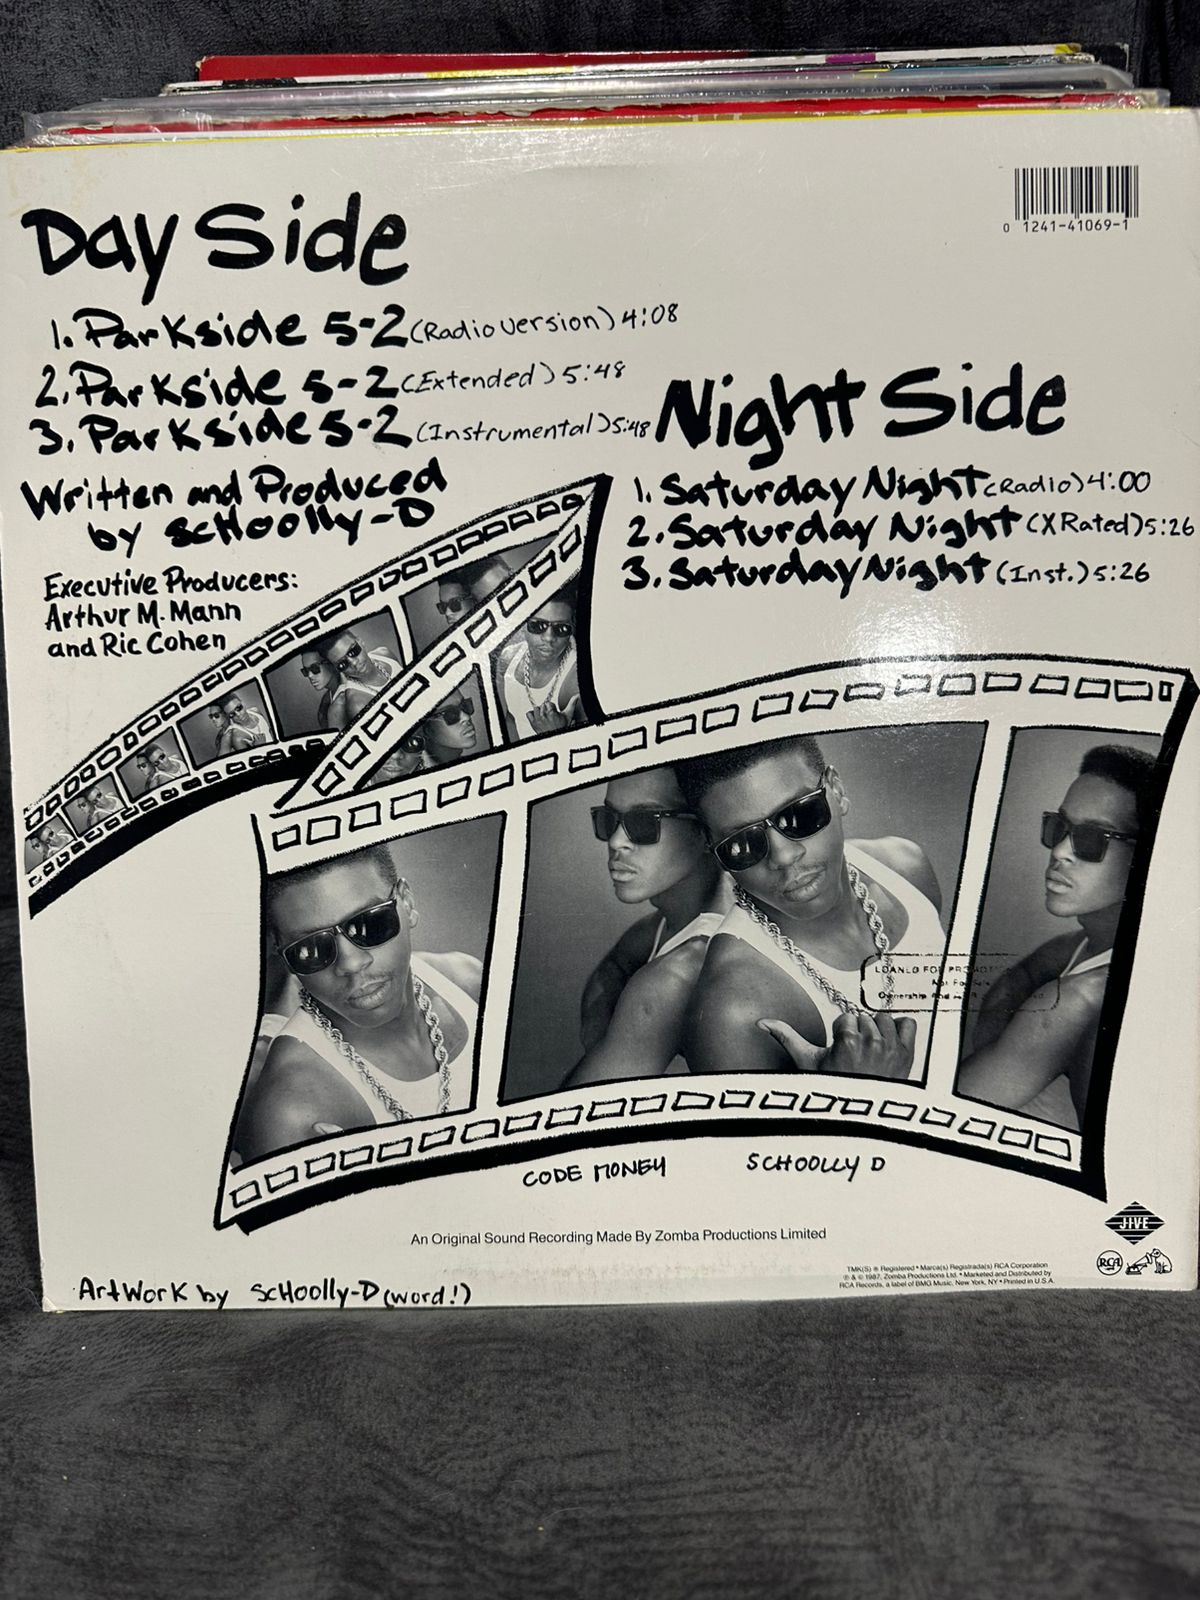 Day Side
1. Parkside 5-2 (Radio Version) 4:08
2. Parkside 5-2 (Extended) 5:48
3. Parkside 5-2 (Instrumental) 5:48
Written and Produced
by ScHoolly-D
Executive Producers:
Arthur M. Mann
and Ric Cohen
0 1241-41069-1
Night Side
1. Saturday Night (Radio) 4:00
2. Saturday Night (X Rated) 5:26
3. Saturday Night (Inst.) 5:26
LOANED FOR PROMOTION
Not For Sale
Ownership And
CODE MONEY
SCHOOLLY D
An Original Sound Recording Made By Zomba Productions Limited
ArtWork by ScHoolly-D (word!)
JIVE
RCA
TMK(S) ® Registered • Marca(s) Registrada(s) RCA Corporation
℗ & © 1987, Zomba Productions Ltd. • Marketed and Distributed by
RCA Records, a label of BMG Music, New York, NY • Printed in U.S.A.